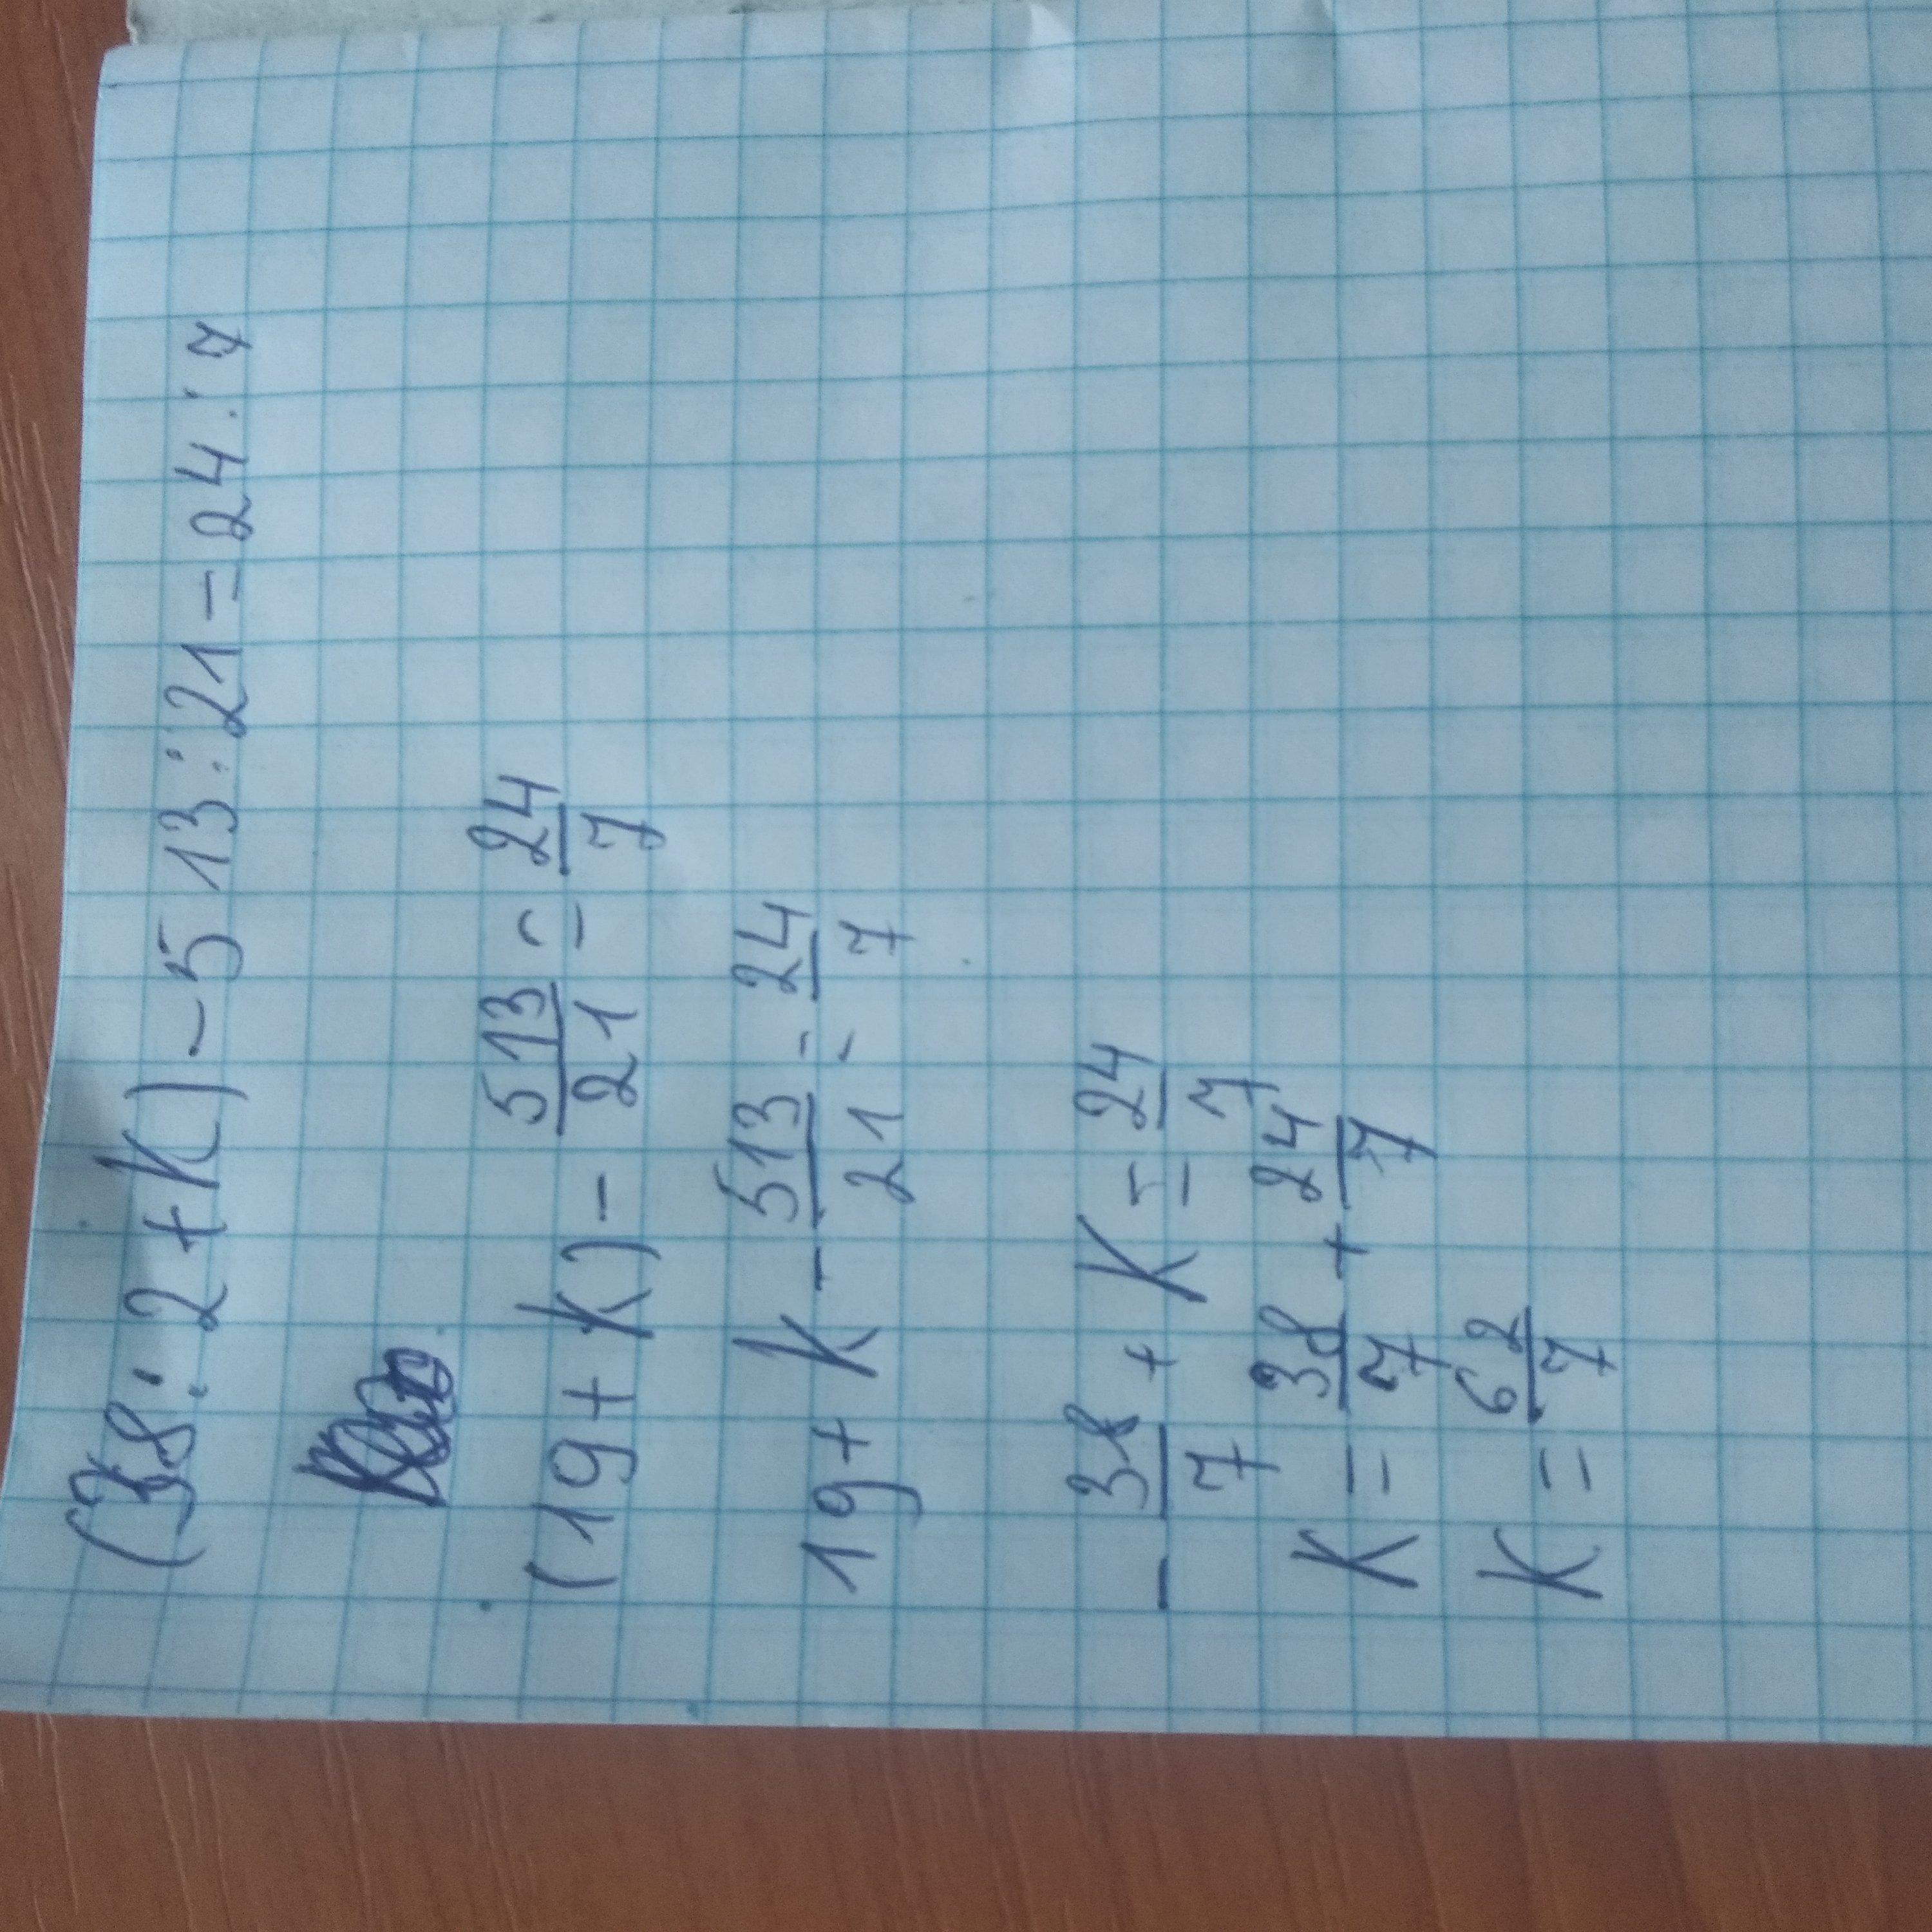 (38:2+K)-513:21=24:7
(19+K)-513/21=24/7
19+K-513/21=24/7
-38/7+K=24/7
K=38/7+24/7
K=62/7